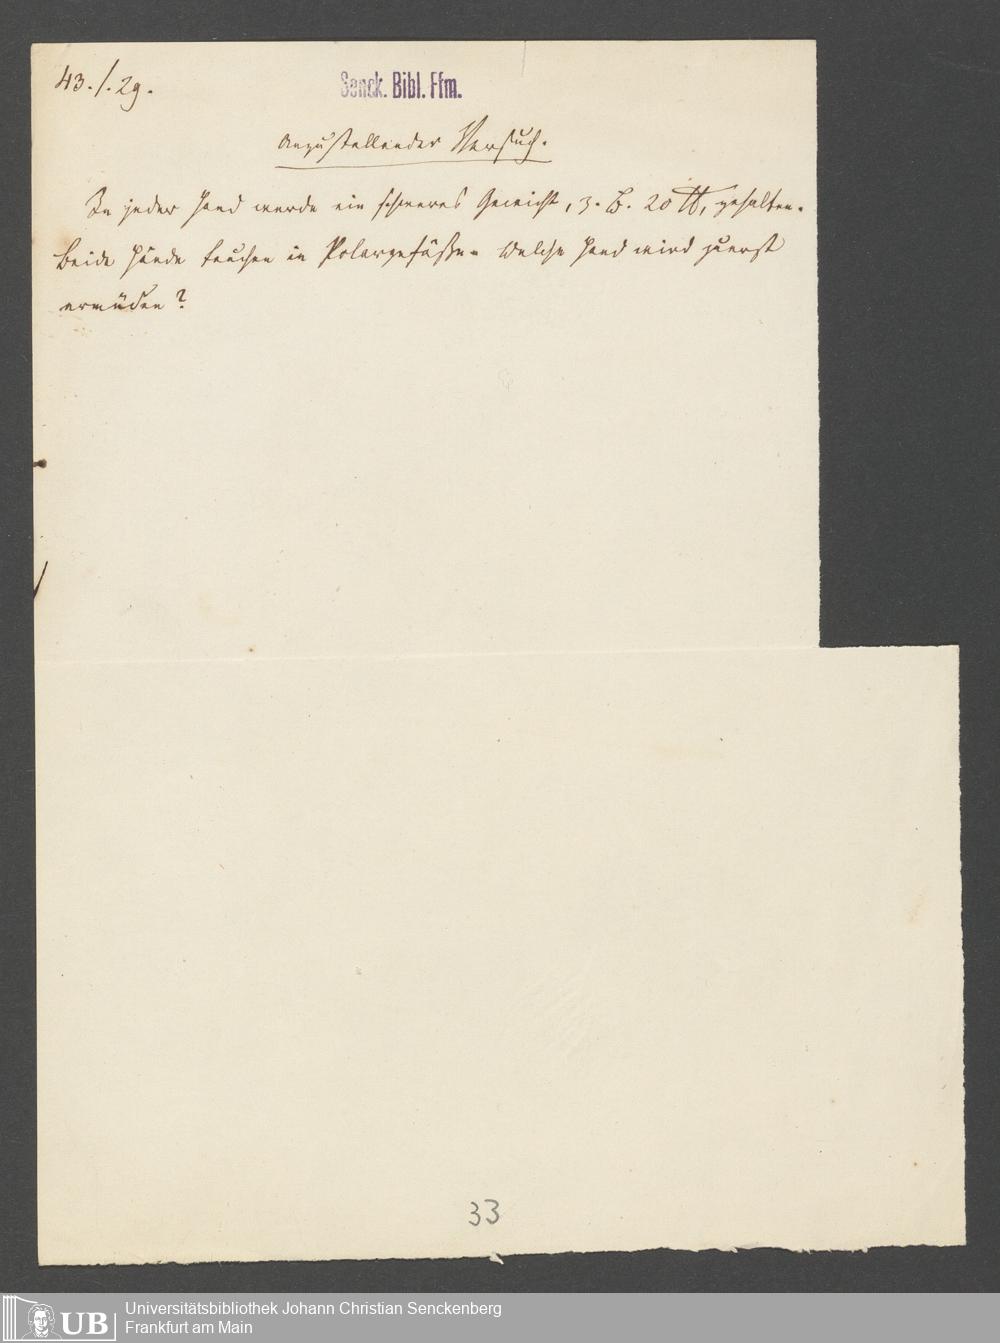 43./.29.
Senck. Bibl. Ffm.
Anzustellender Versuch.
In jeder Hand werde ein schweres Gewicht, z. B. 20 ℔, gehalten.
Beide Hände tauchen in Polargefäße. Welche Hand wird zuerst
ermüden?
33
UB
Universitätsbibliothek Johann Christian Senckenberg
Frankfurt am Main